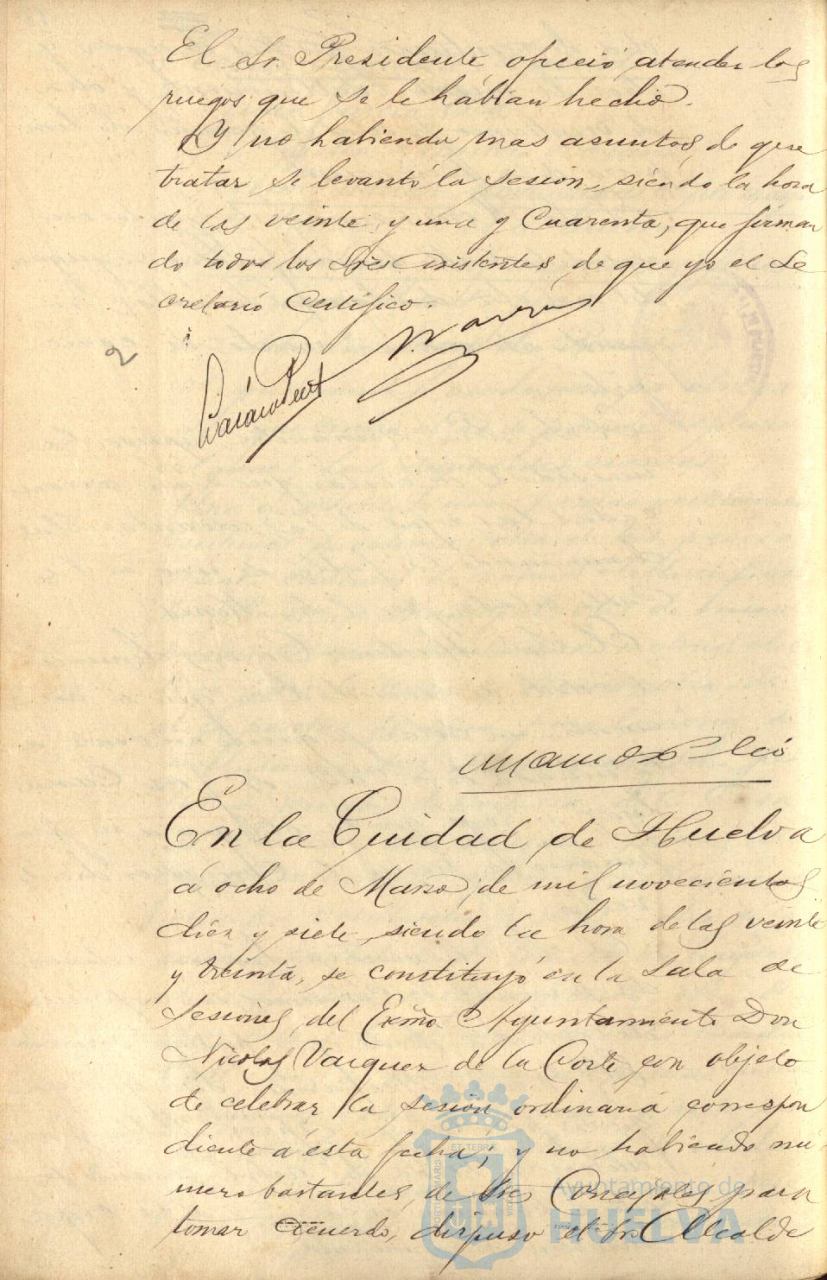 El Sr. Presidente ofreció atender los
ruegos que se le habían hecho.
Y no habiendo mas asuntos de que
tratar se levantó la sesión, siendo la hora
de las veinte y una y Cuarenta, que firman
do todos los Sres Asistentes, de que yo el Se
cretario Certifico.
2
En la Cuidad de Huelva
á ocho de Marzo, de mil novecientos
diez y siete, siendo la hora de las veinte
y treinta, se constituyó en la Sala de
Sesiones, del Exmo Ayuntamiento Don
Nicolas Vazquez de la Corte, con objeto
de celebrar la sesión ordinaria correspon
diente á esta fecha, y no habiendo nú
mero bastantes, de Sres Concejales para
tomar acuerdo, dispuso el Sr. Alcalde
Ayuntamiento de
HUELVA